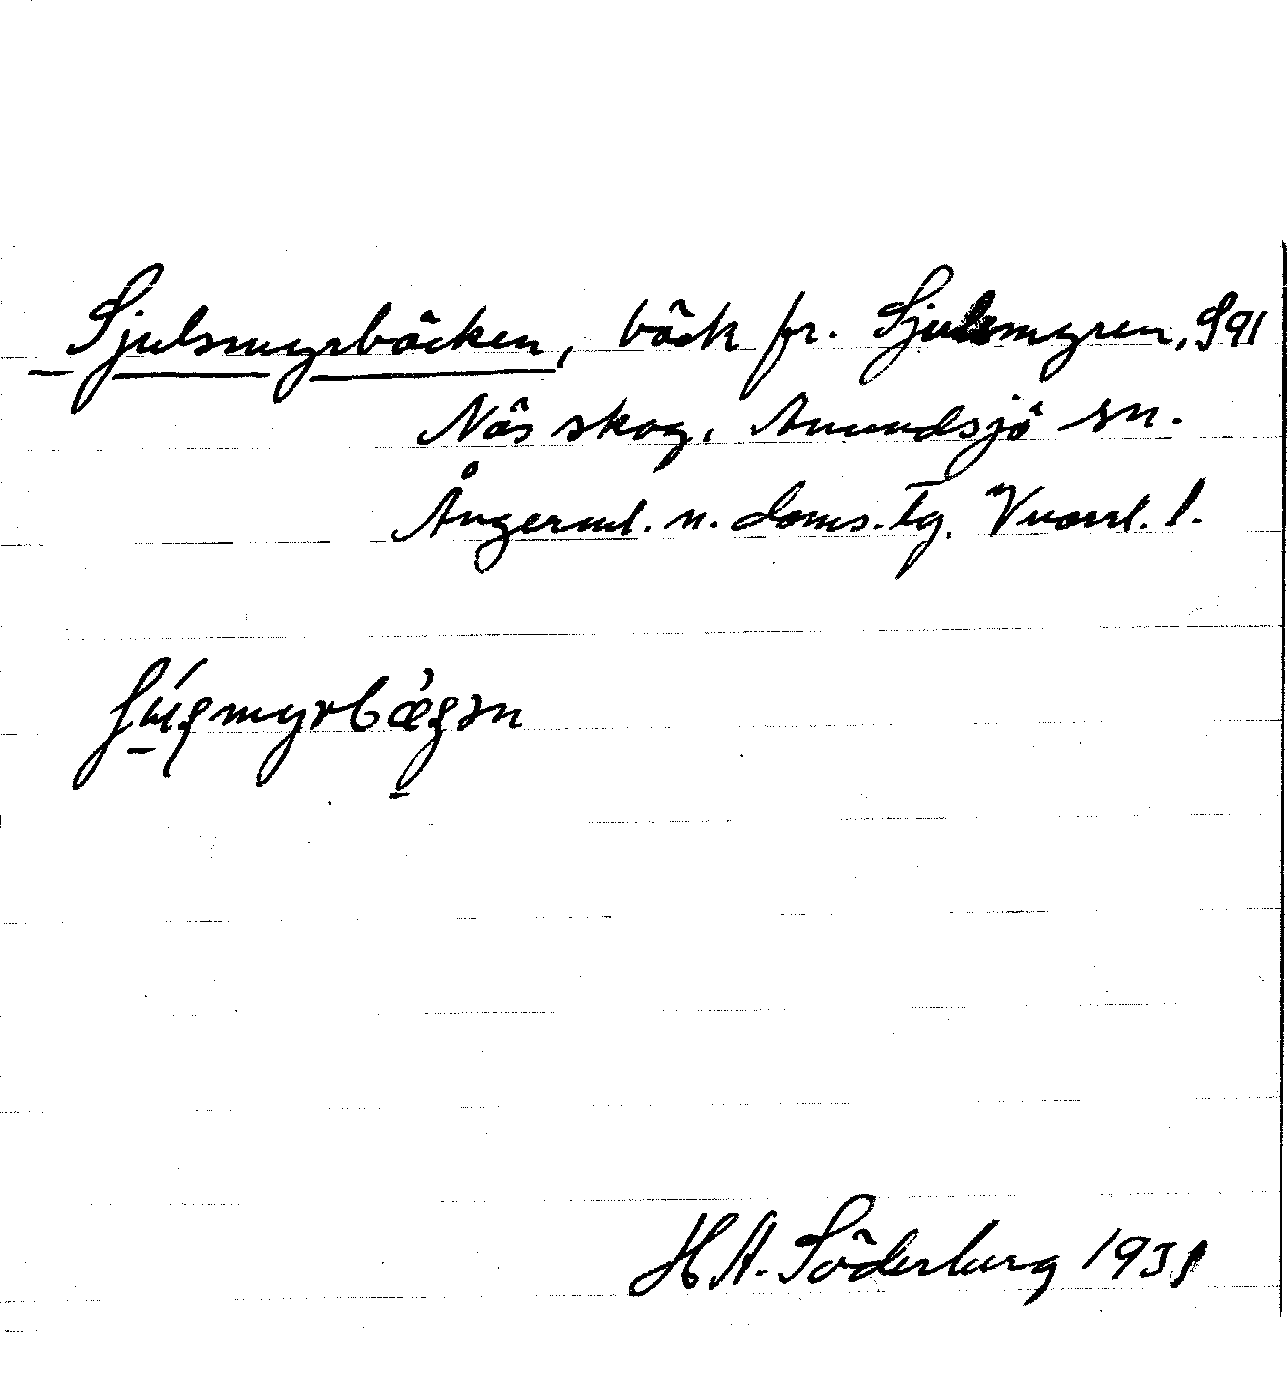 Sjulsmyrbäcken, bäck fr. Sjulsmyren, S91
Näs skog, Anundsjö sn.
Ångerml. n. doms. tg. Vnorrl. l.
H A. Söderberg